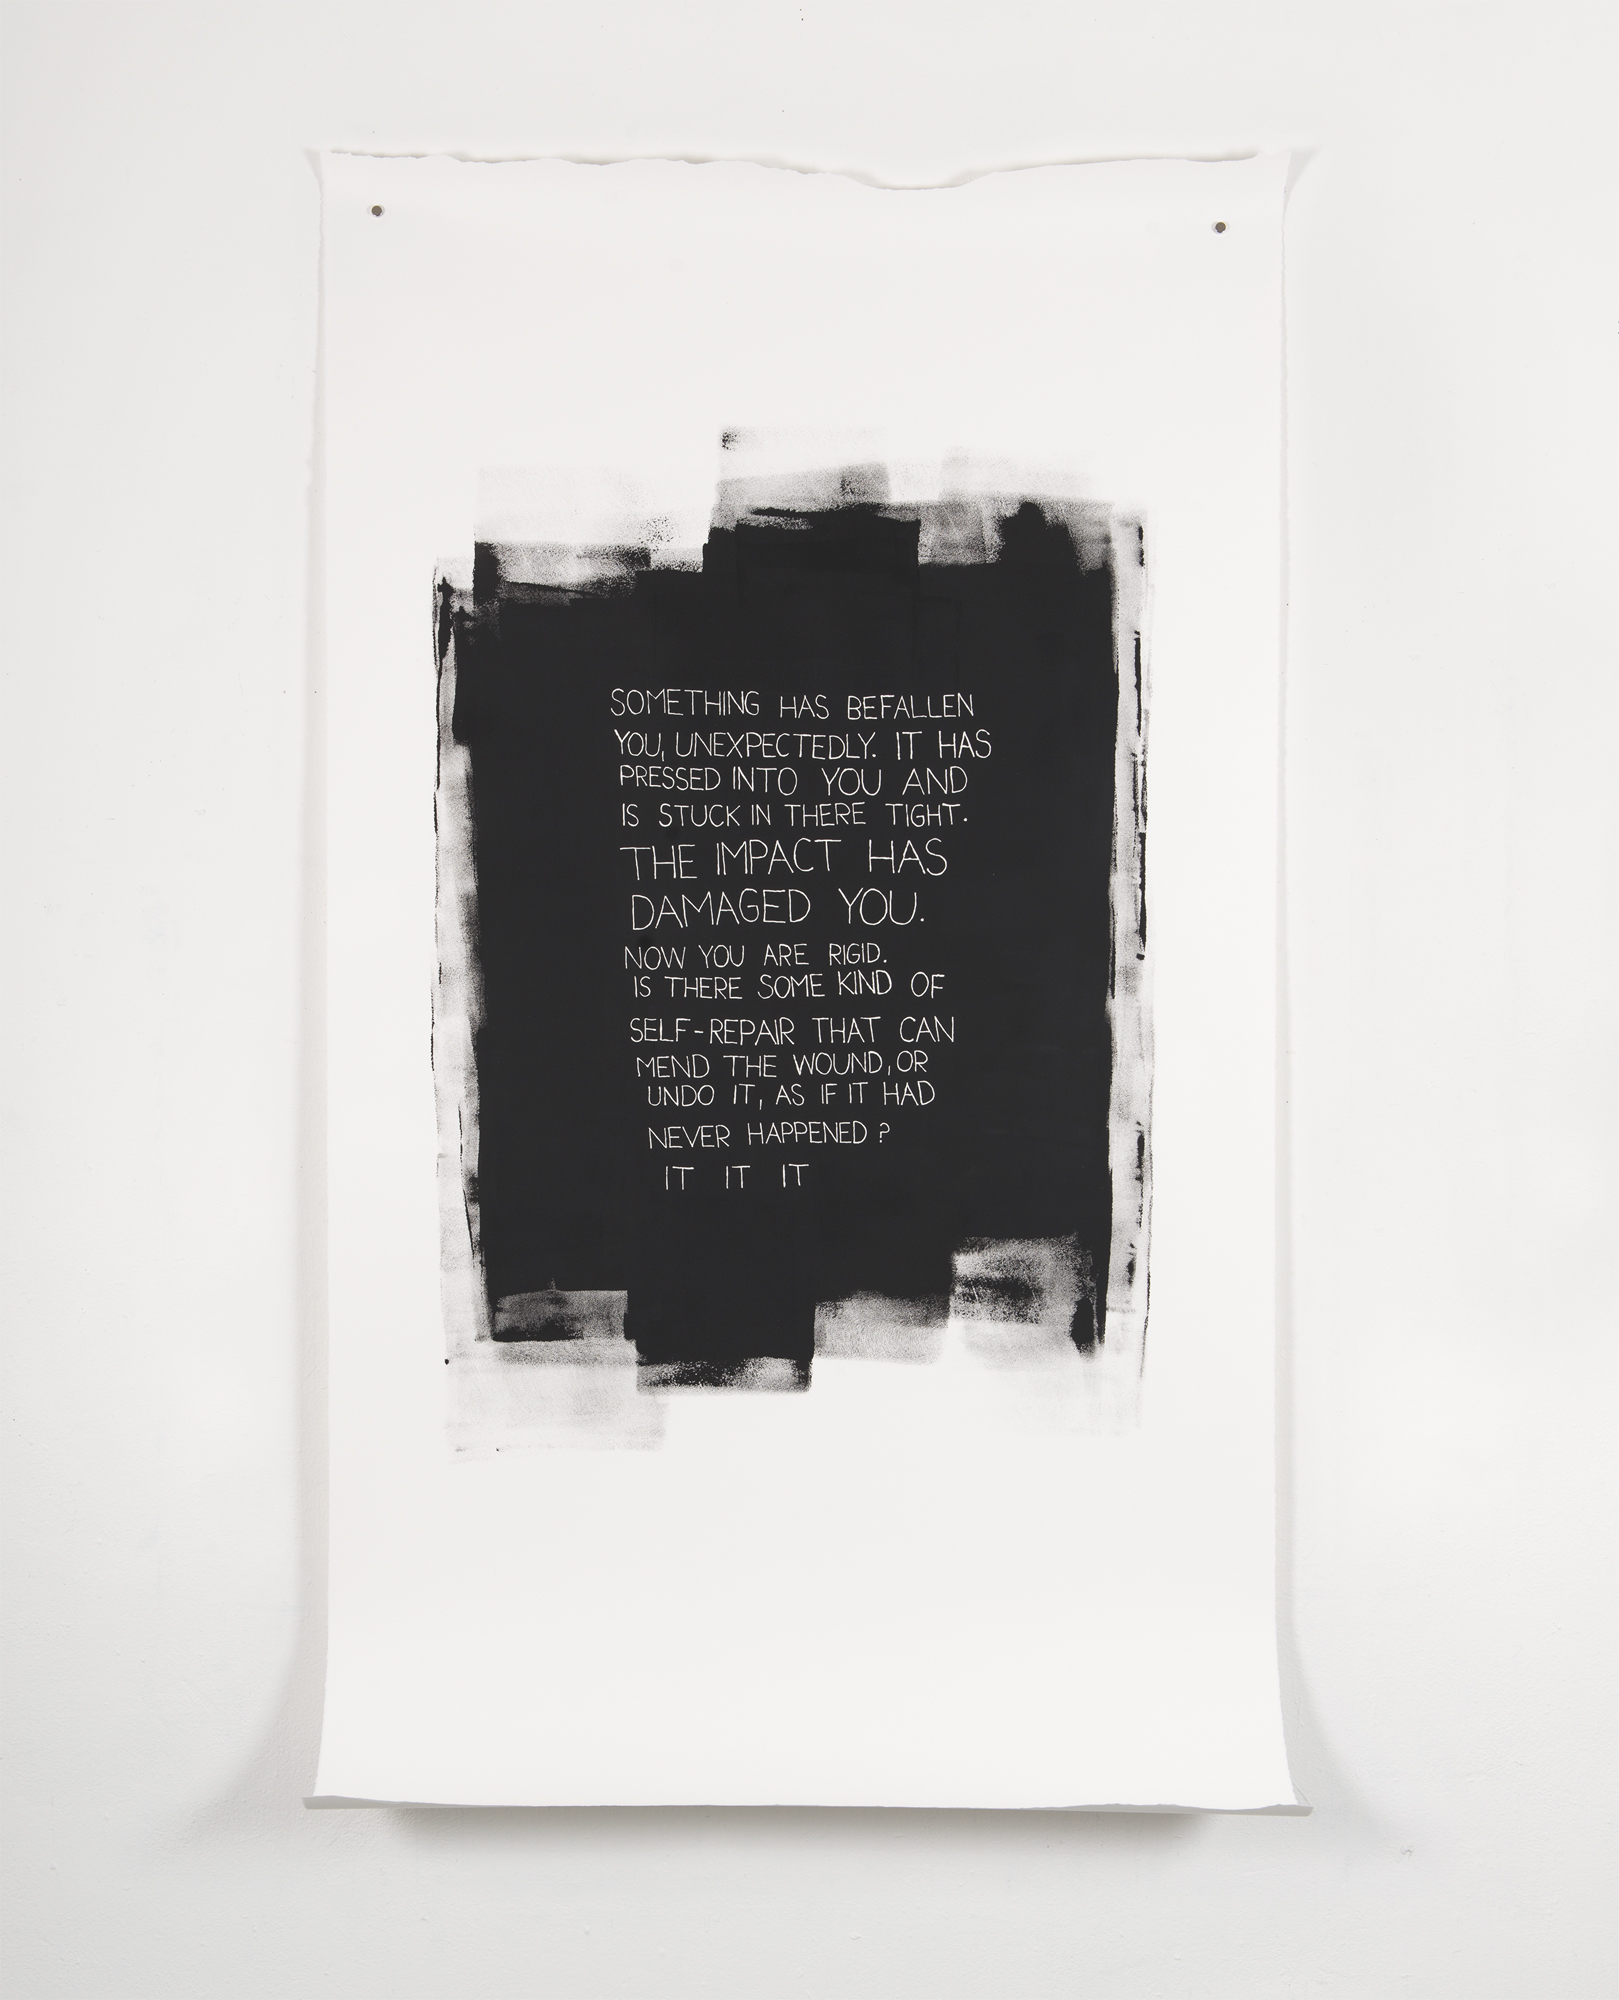 SOMETHING HAS BEFALLEN
YOU, UNEXPECTEDLY. IT HAS
PRESSED INTO YOU AND
IS STUCK IN THERE TIGHT.
THE IMPACT HAS
DAMAGED YOU.
NOW YOU ARE RIGID.
IS THERE SOME KIND OF
SELF-REPAIR THAT CAN
MEND THE WOUND, OR
UNDO IT, AS IF IT HAD
NEVER HAPPENED?
IT IT IT